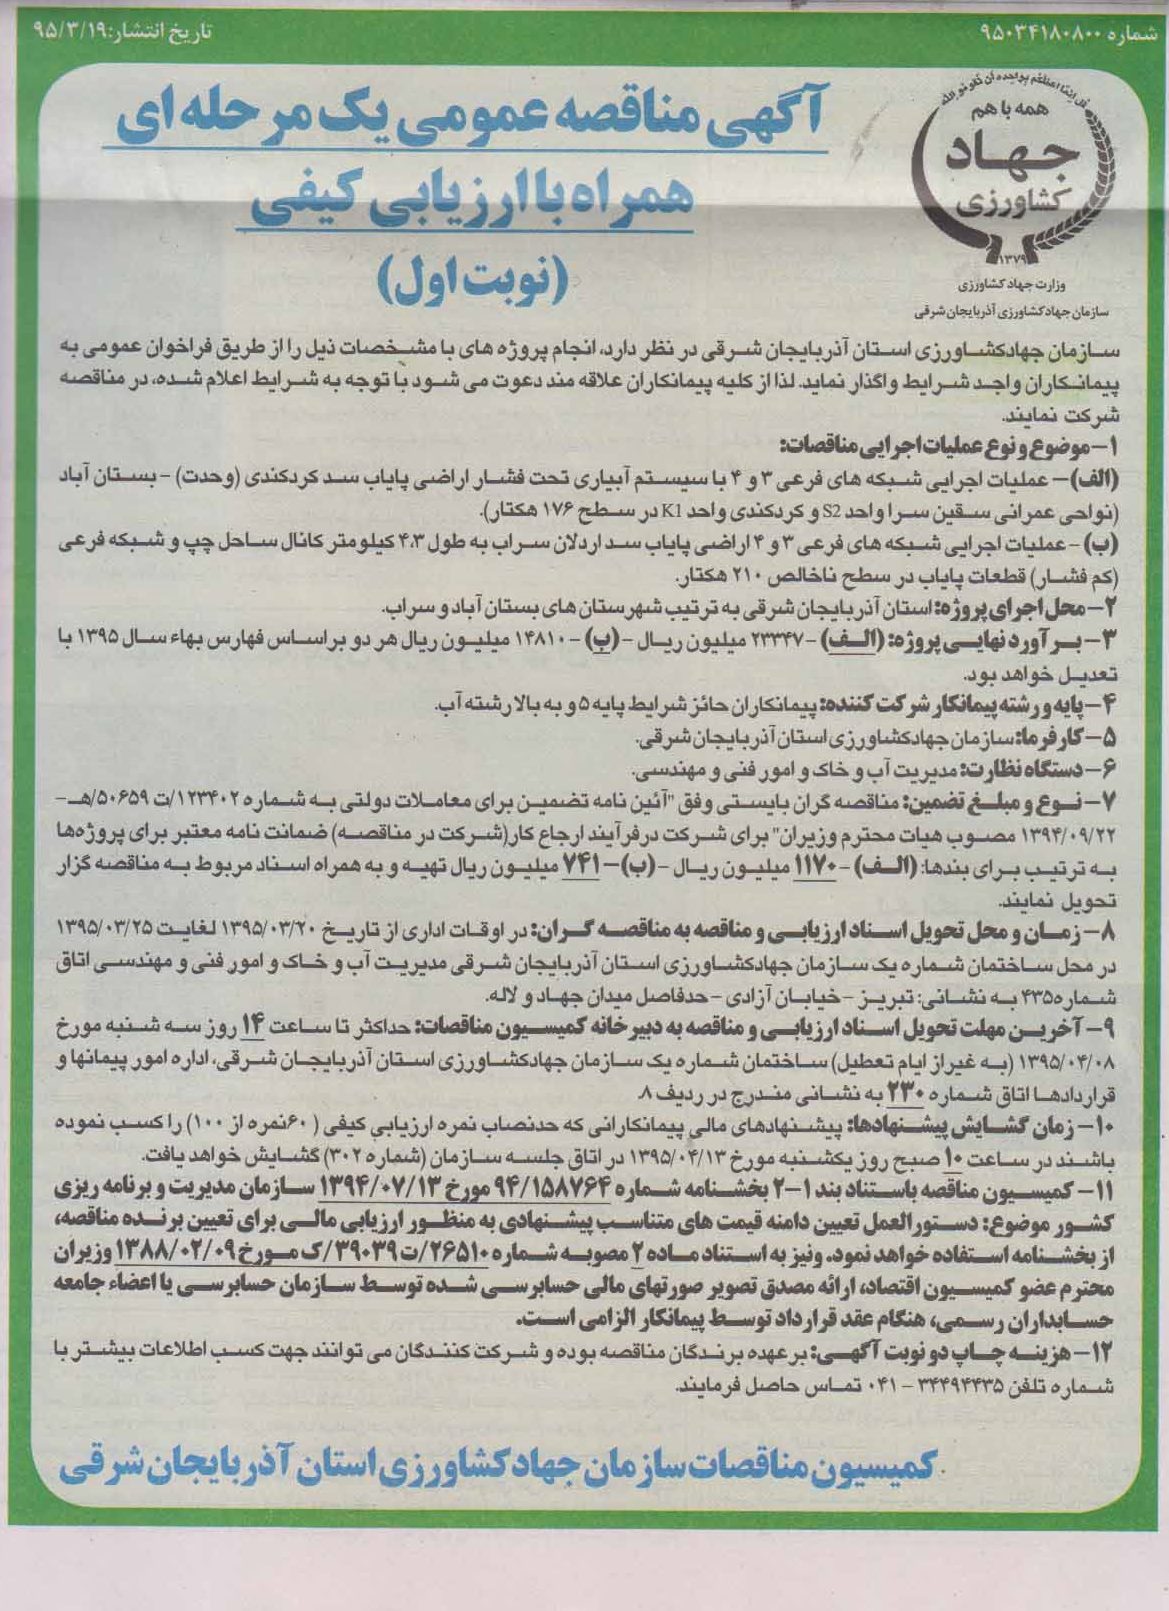 شماره ۹۵۰۳۴۱۸۰۸۰۰
تاریخ انتشار:۹۵/۳/۱۹
همه با هم
جهاد
کشاورزی
۱۳۷۹
وزارت جهاد کشاورزی
سازمان جهاد کشاورزی آذربایجان شرقی
آگهی مناقصه عمومی یک مرحله ای
همراه با ارزیابی کیفی
(نوبت اول)
سازمان جهادکشاورزی استان آذربایجان شرقی در نظر دارد، انجام پروژه های با مشخصات ذیل را از طریق فراخوان عمومی به
پیمانکاران واجد شرایط واگذار نماید. لذا از کلیه پیمانکاران علاقه مند دعوت می شود با توجه به شرایط اعلام شده، در مناقصه
شرکت نمایند.
۱-موضوع و نوع عملیات اجرایی مناقصات:
(الف)- عملیات اجرایی شبکه های فرعی ۳ و ۴ با سیستم آبیاری تحت فشار اراضی پایاب سد کردکندی (وحدت) - بستان آباد
(نواحی عمرانی سقین سرا واحد S2 و کردکندی واحد K1 در سطح ۱۷۶ هکتار).
(ب) - عملیات اجرایی شبکه های فرعی ۳ و ۴ اراضی پایاب سد اردلان سراب به طول ۴.۳ کیلومتر کانال ساحل چپ و شبکه فرعی
(کم فشار) قطعات پایاب در سطح ناخالص ۲۱۰ هکتار.
۲-محل اجرای پروژه: استان آذربایجان شرقی به ترتیب شهرستان های بستان آباد و سراب.
۳- برآورد نهایی پروژه: (الف) - ۲۳۳۴۷ میلیون ریال - (ب) - ۱۴۸۱۰ میلیون ریال هر دو براساس فهارس بهاء سال ۱۳۹۵ با
تعدیل خواهد بود.
۴-پایه و رشته پیمانکار شرکت کننده: پیمانکاران حائز شرایط پایه ۵ و به بالا رشته آب.
۵-کارفرما: سازمان جهادکشاورزی استان آذربایجان شرقی.
۶-دستگاه نظارت: مدیریت آب و خاک و امور فنی و مهندسی.
۷- نوع و مبلغ تضمین: مناقصه گران بایستی وفق "آئین نامه تضمین برای معاملات دولتی به شماره ۱۲۳۴۰۲/ت ۵۰۶۵۹/هـ-
۱۳۹۴/۰۹/۲۲ مصوب هیات محترم وزیران" برای شرکت درفرآیند ارجاع کار(شرکت در مناقصه) ضمانت نامه معتبر برای پروژه‌ها
به ترتیب برای بندها: (الف) - ۱۱۷۰ میلیون ریال - (ب)- ۷۴۱ میلیون ریال تهیه و به همراه اسناد مربوط به مناقصه گزار
تحویل نمایند.
۸- زمان و محل تحویل اسناد ارزیابی و مناقصه به مناقصه گران: در اوقات اداری از تاریخ ۱۳۹۵/۰۳/۲۰ لغایت ۱۳۹۵/۰۳/۲۵
در محل ساختمان شماره یک سازمان جهادکشاورزی استان آذربایجان شرقی مدیریت آب و خاک و امور فنی و مهندسی اتاق
شماره۴۳۵ به نشانی: تبریز - خیابان آزادی - حدفاصل میدان جهاد و لاله.
۹- آخرین مهلت تحویل اسناد ارزیابی و مناقصه به دبیرخانه کمیسیون مناقصات: حداکثر تا ساعت ۱۴ روز سه شنبه مورخ
۱۳۹۵/۰۴/۰۸ (به غیراز ایام تعطیل) ساختمان شماره یک سازمان جهادکشاورزی استان آذربایجان شرقی، اداره امور پیمانها و
قراردادها اتاق شماره ۲۳۰ به نشانی مندرج در ردیف ۸.
۱۰- زمان گشایش پیشنهادها: پیشنهادهای مالی پیمانکارانی که حدنصاب نمره ارزیابی کیفی ( ۶۰نمره از ۱۰۰) را کسب نموده
باشند در ساعت ۱۰ صبح روز یکشنبه مورخ ۱۳۹۵/۰۴/۱۳ در اتاق جلسه سازمان (شماره ۳۰۲) گشایش خواهد یافت.
۱۱- کمیسیون مناقصه باستناد بند ۱-۲ بخشنامه شماره ۹۴/۱۵۸۷۶۴ مورخ ۱۳۹۴/۰۷/۱۳ سازمان مدیریت و برنامه ریزی
کشور موضوع: دستورالعمل تعیین دامنه قیمت های متناسب پیشنهادی به منظور ارزیابی مالی برای تعیین برنده مناقصه،
از بخشنامه استفاده خواهد نمود. ونیز به استناد ماده ۲ مصوبه شماره ۲۶۵۱۰/ت۳۹۰۳۹/ک مورخ ۱۳۸۸/۰۲/۰۹ وزیران
محترم عضو کمیسیون اقتصاد، ارائه مصدق تصویر صورتهای مالی حسابرسی شده توسط سازمان حسابرسی یا اعضاء جامعه
حسابداران رسمی، هنگام عقد قرارداد توسط پیمانکار الزامی است.
۱۲- هزینه چاپ دو نوبت آگهی: برعهده برندگان مناقصه بوده و شرکت کنندگان می توانند جهت کسب اطلاعات بیشتر با
شماره تلفن ۳۴۴۹۴۴۳۵ - ۰۴۱ تماس حاصل فرمایند.
کمیسیون مناقصات سازمان جهاد کشاورزی استان آذربایجان شرقی